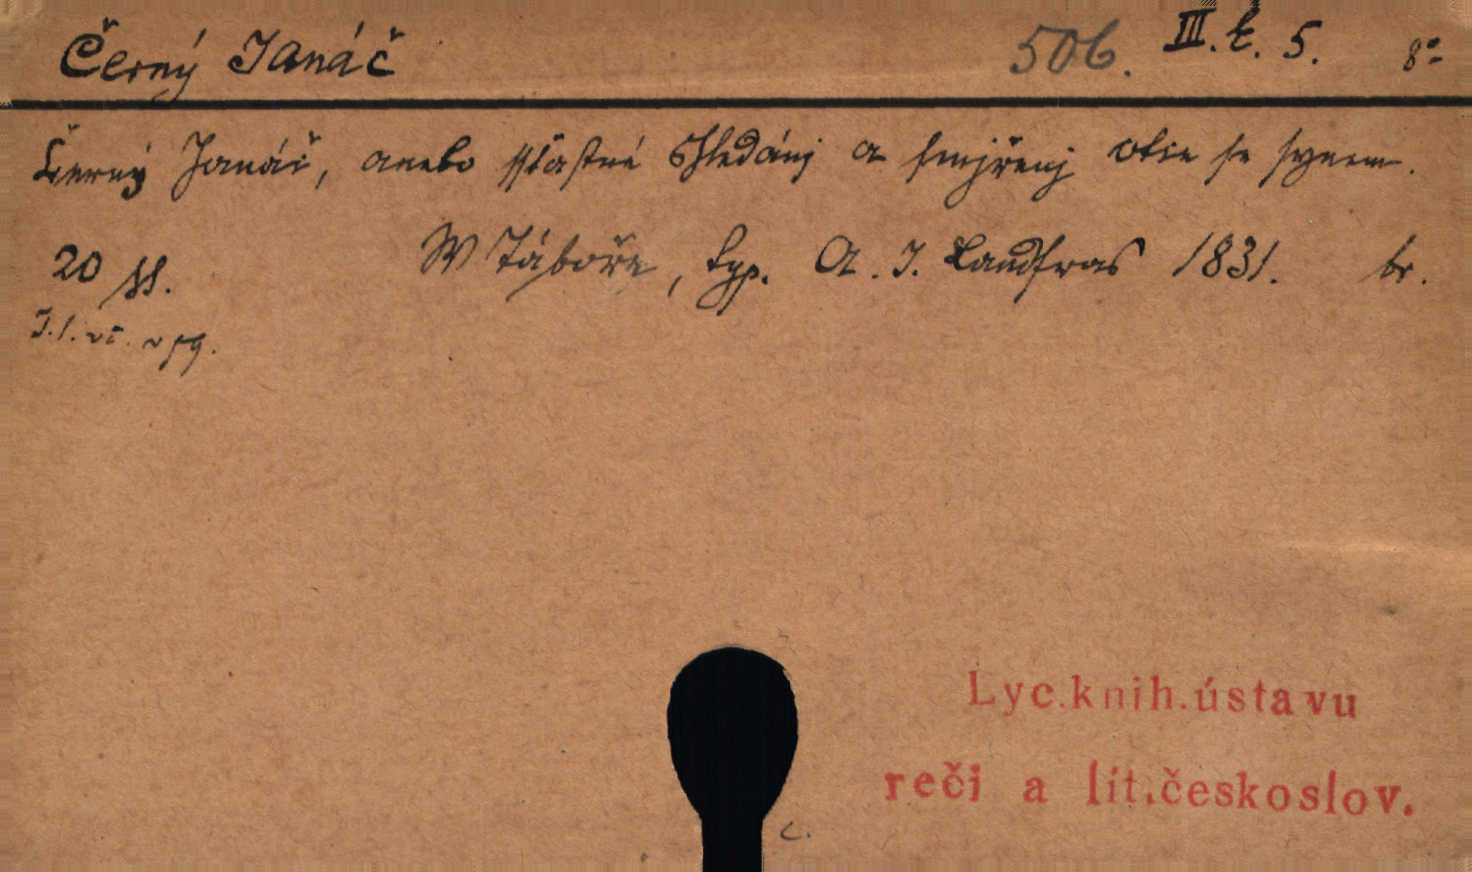 Černý Janáč 506. III. t. 5. 8°
Černý Janáč, anebo sstiastné Shledánj a smjřenj otce se synem.
20 ss. W Táboře, Typ. A. J. Landfras 1831. br.
Lyc.knih.ústavu
reči a lit.českoslov.
c.